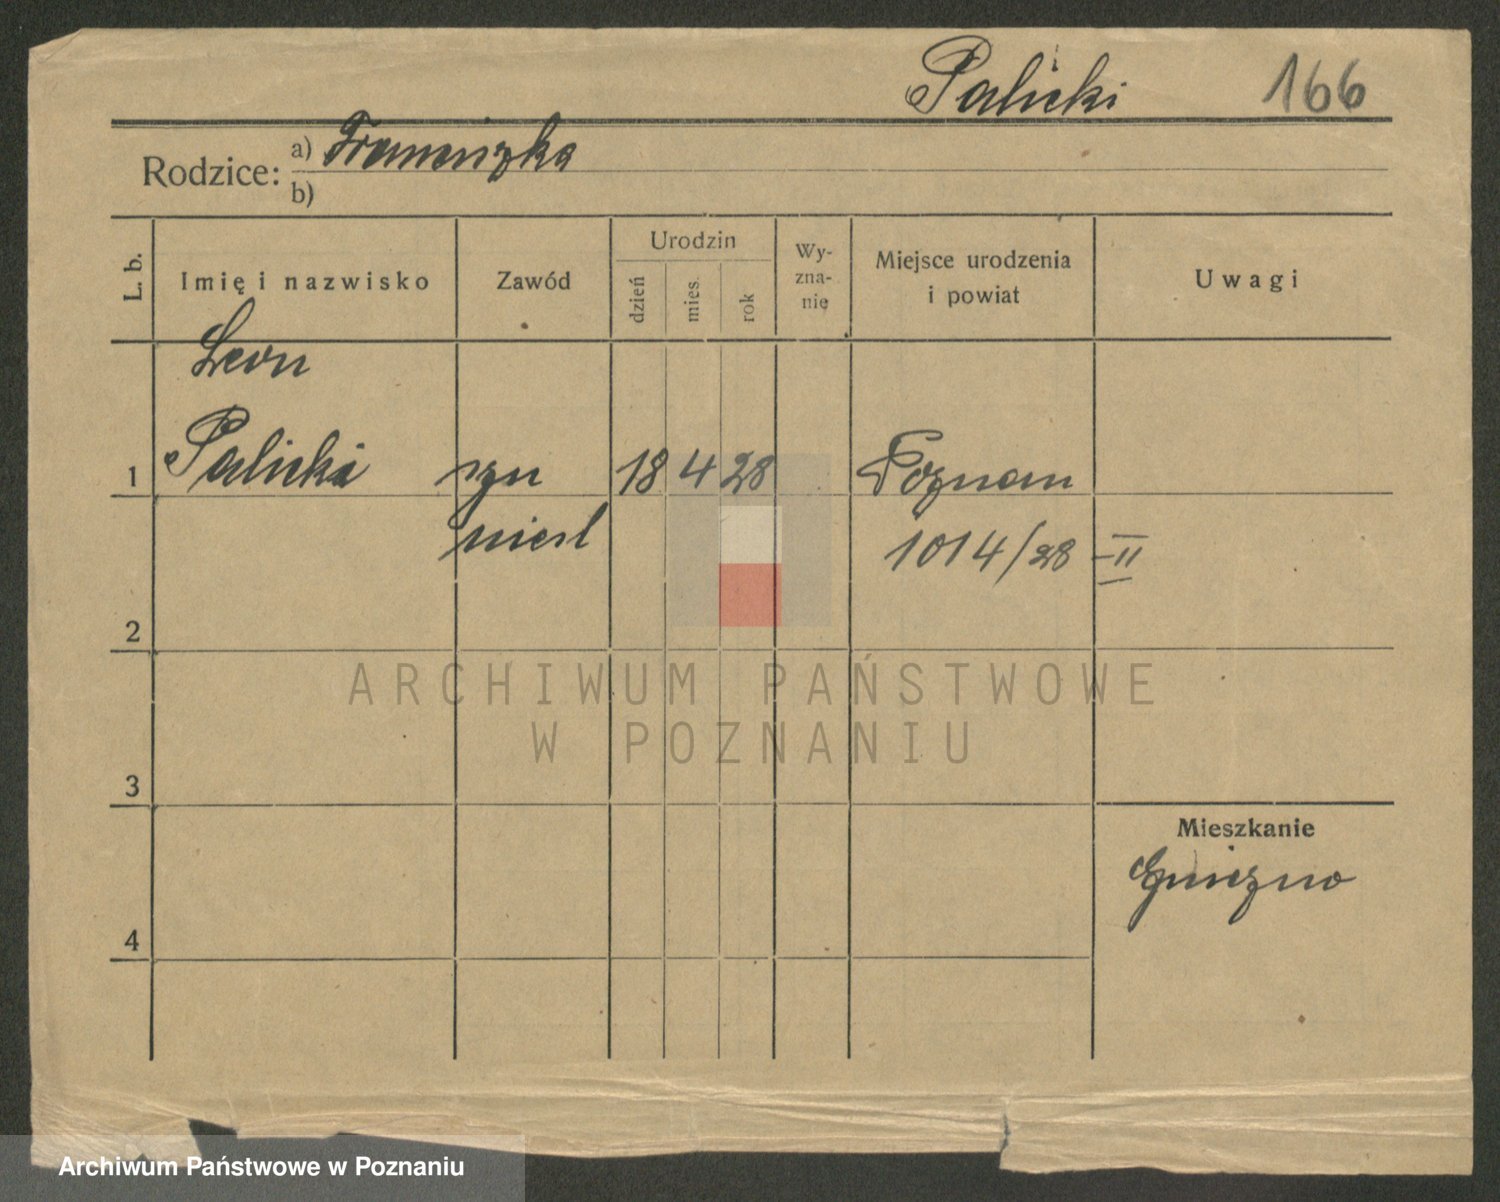 Palicki 166
Rodzice: a) Franciszka
b)
L. b.
Imię i nazwisko
Zawód
Urodzin
dzień
mies.
rok
Wy-
zna-
nie
Miejsce urodzenia
i powiat
Uwagi
Leon
1 Palicki syn 18 4 28 Poznan
niesl 1014/28 -II
2
3
4
Mieszkanie
Gniezno
ARCHIWUM PAŃSTWOWE
W POZNANIU
Archiwum Państwowe w Poznaniu